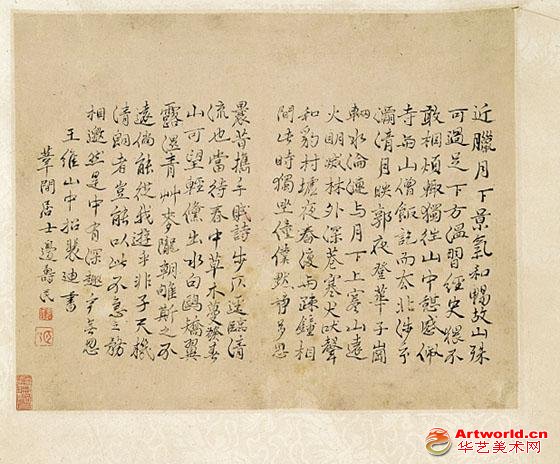 近臘月下景氣和暢故山殊
可過足下方温習經史猥不
敢相煩輒獨往山中憩感佩
寺与山僧飯訖而去北涉玄
灞清月映郭夜登華子崗
輞水淪漣与月下上寒山遠
火明滅林外深巷寒犬吠聲
和豹村墟夜舂復与疎鐘相
間此時獨坐僮僕默静多思
曩昔攜手賦詩步仄迳臨清
流也當待春中草木蔓發春
山可望輕儵出水白鷗矯翼
露濕青艸麥隴朝雊斯之不
遠倘能從我遊乎非子天機
清者豈能以此不急之務
相邀然是中有深趣乎無忽
王維山中招裴迪書
葦間居士邊壽民
Artworld.cn
华艺美术网